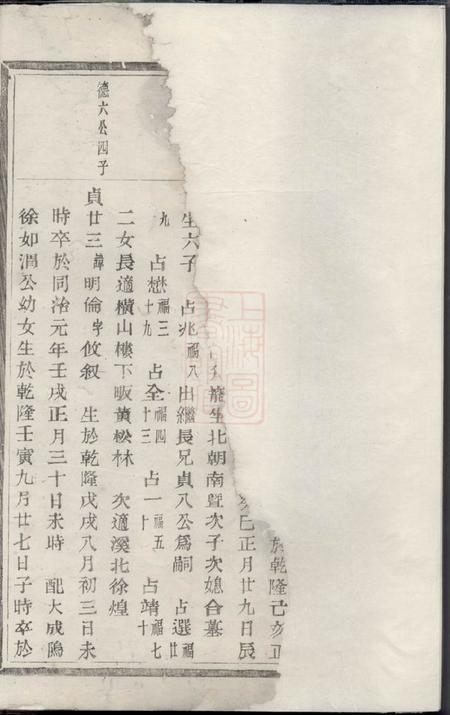 於乾隆己亥正
巳正月廿九日辰
龍生北朝南暨次子次媳合墓
生六子 占兆福八出繼長兄貞八公爲嗣 占選福廿
九 占懋福三十九 占全福四十三 占一福五十 占靖福七十
二女長適橫山樓下畈黃松林 次適溪北徐煌
貞廿三諱明倫字攸叙 生於乾隆戊戌八月初三日未
時卒於同治元年壬戌正月三十日未時 配大成隖
徐如潤公幼女生於乾隆壬寅九月廿七日子時卒於
德六公四子
上海圖